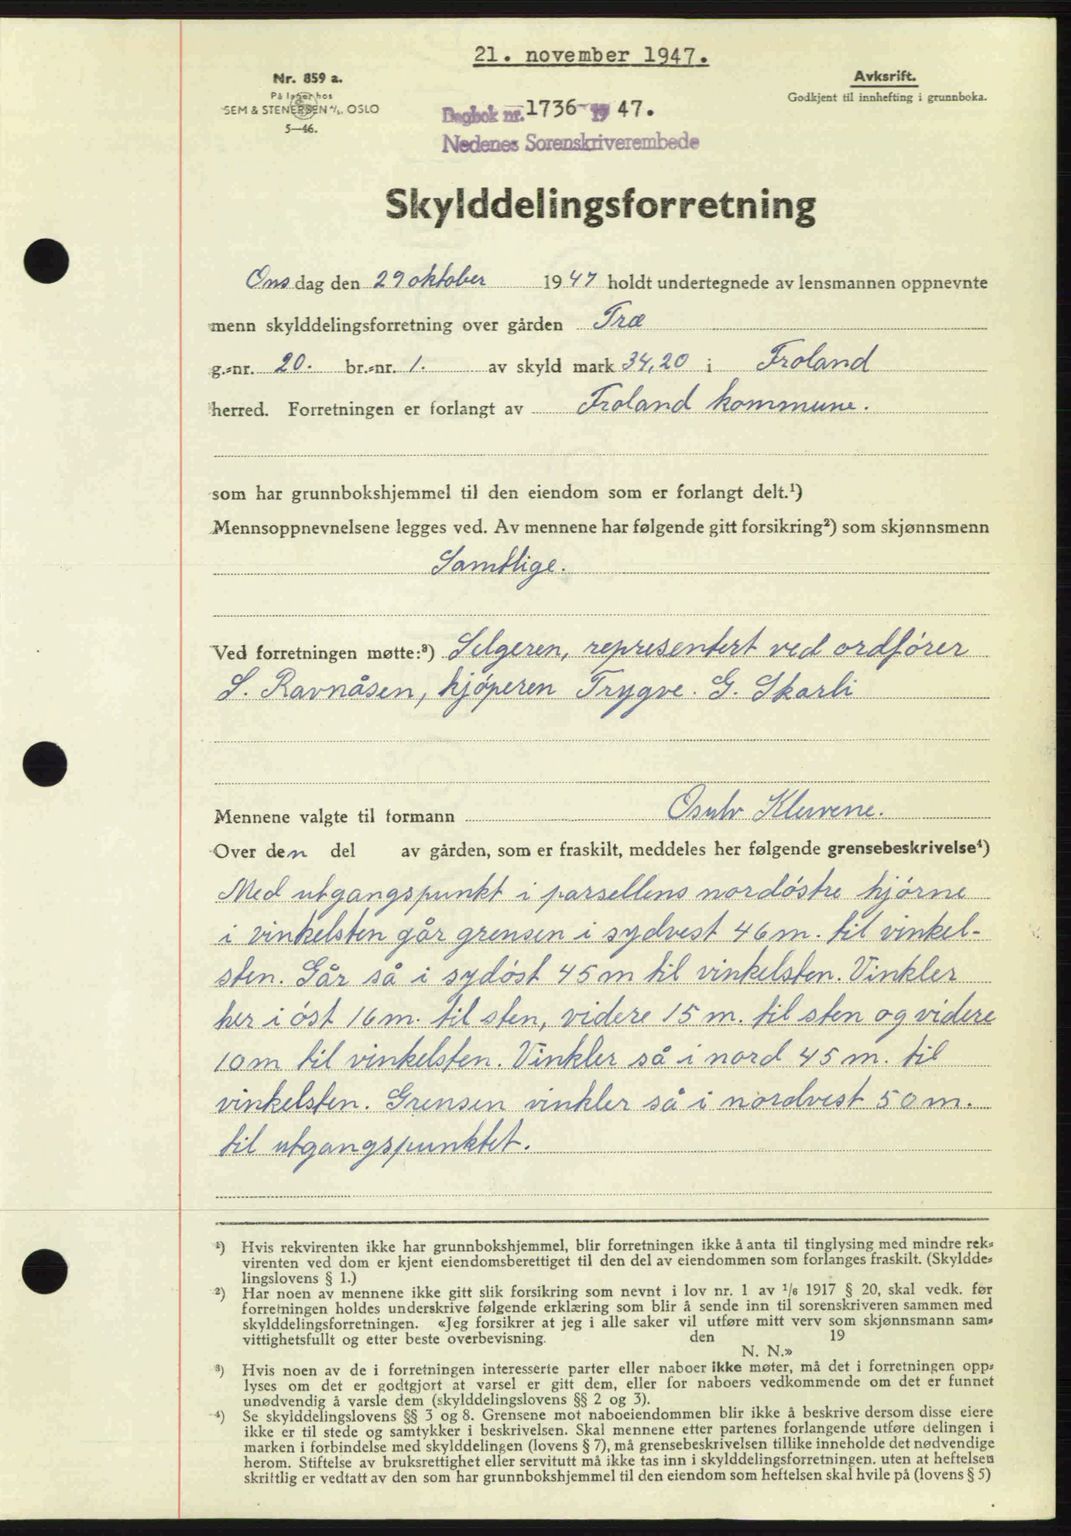 21. november 1947.
Nr. 859 a.
På lager hos
SEM & STENERSEN A/S. OSLO
5—46.
Avksrift.
Godkjent til innhefting i grunnboka.
Dagbok nr. 1736 - 19 47.
Nedenes Sorenskriverembede
Skylddelingsforretning
Onsdag den 29 oktober 1947 holdt undertegnede av lensmannen oppnevnte
menn skylddelingsforretning over gården Træ
g.-nr. 20. br.-nr. 1. av skyld mark 34,20 i Froland
herred. Forretningen er forlangt av Froland kommune.
som har grunnbokshjemmel til den eiendom som er forlangt delt.¹)
Mennsoppnevnelsene legges ved. Av mennene har følgende gitt forsikring²) som skjønnsmenn
Samtlige.
Ved forretningen møtte:³) Selgeren, representert ved ordfører
S. Ravnåsen, kjøperen Trygve. G. Skarli
Mennene valgte til formann Osulv Kleivene.
Over den del av gården, som er fraskilt, meddeles her følgende grensebeskrivelse⁴)
Med utgangspunkt i parsellens nordøstre hjørne
i vinkelsten går grensen i sydvest 46 m. til vinkel-
sten. Går så i sydøst 45 m til vinkelsten. Vinkler
her i øst 16 m. til sten, videre 15 m. til sten og videre
10 m til vinkelsten. Vinkler så i nord 45 m. til
vinkelsten. Grensen vinkler så i nordvest 50 m.
til utgangspunktet.
¹) Hvis rekvirenten ikke har grunnbokshjemmel, blir forretningen ikke å anta til tinglysing med mindre rek-
virenten ved dom er kjent eiendomsberettiget til den del av eiendommen som forlanges fraskilt. (Skyldde-
lingslovens § 1.)
²) Har noen av mennene ikke gitt slik forsikring som nevnt i lov nr. 1 av ¹/6 1917 § 20, skal vedk. før
forretningen holdes underskrive følgende erklæring som blir å sende inn til sorenskriveren sammen med
skylddelingsforretningen. «Jeg forsikrer at jeg i alle saker vil utføre mitt verv som skjønnsmann sam-
vittighetsfullt og etter beste overbevisning. den 19
N. N.»
³) Hvis noen av de i forretningen interesserte parter eller naboer ikke møter, må det i forretningen opp-
lyses om det er godtgjort at varsel er gitt dem, eller for naboers vedkommende om det er funnet
unødvendig å varsle dem (skylddelingslovens §§ 2 og 3).
⁴) Se skylddelingslovens §§ 3 og 8. Grensene mot naboeiendommen blir ikke å beskrive dersom disse eiere
ikke er til stede og samtykker i beskrivelsen. Skal mennene etter partenes forlangende utføre delingen i
marken i forbindelse med skylddelingen (lovens § 7), må grensebeskrivelsen tillike inneholde det nødvendige
herom. Stiftelse av bruksrettighet eller servitutt må ikke tas inn i skylddelingsforretningen. uten at heftelsen
skriftlig er vedtatt av den som har grunnbokshjemmel til den eiendom som heftelsen skal hvile på (lovens § 5)